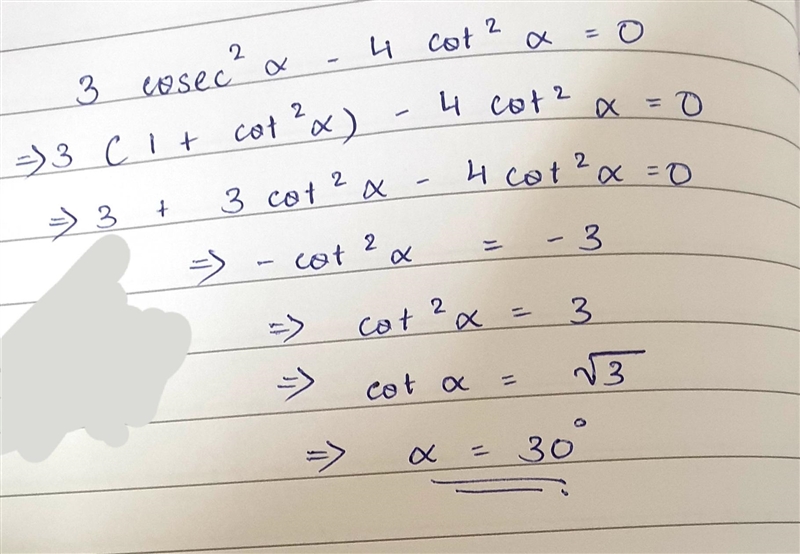 3 cosec² α - 4 cot² α = 0
⇒ 3 (1 + cot² α) - 4 cot² α = 0
⇒ 3 + 3 cot² α - 4 cot² α = 0
⇒ - cot² α = - 3
⇒ cot² α = 3
⇒ cot α = √3
⇒ α = 30°